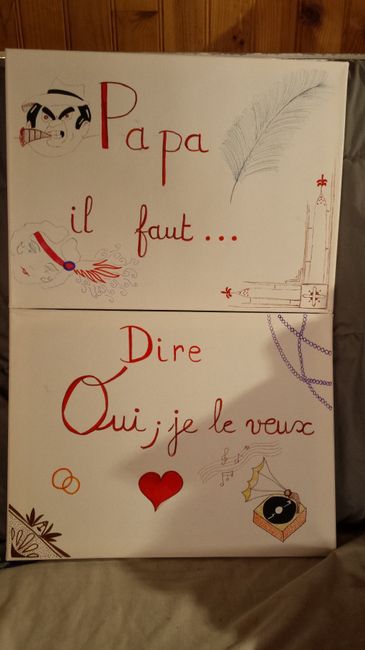 Papa
il faut...
Dire
Oui; je le veux